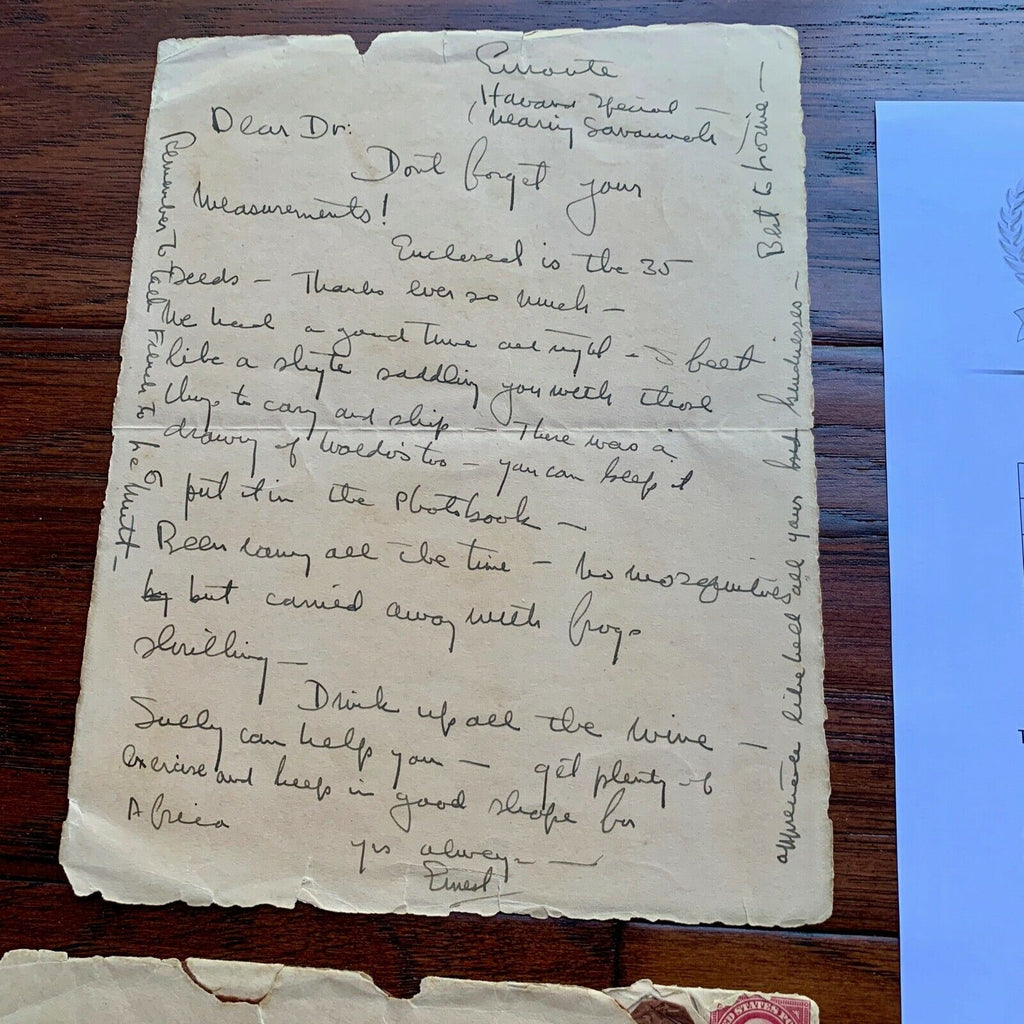 Enroute
Havana Special —
(nearing Savannah)
Dear Dr:
Dont forget your
Measurements!
Enclosed is the 35
— Thanks ever so much —
We had a good time all right — I feel
like a saddling you with those
things to carry and ship — There was a
drawing of Waldo's too — you can keep it
put it in the Photobook —
Been rainy all the time — no mosquitoes
by but carried away with frogs
shrilling —
Drink up all the wine —
Sully can help you — get plenty of
exercise and keep in good shape for
Africa
yrs always —
Ernest
Remember to French to the Mutt —
appreciate like hell all your kindnesses —
Best to